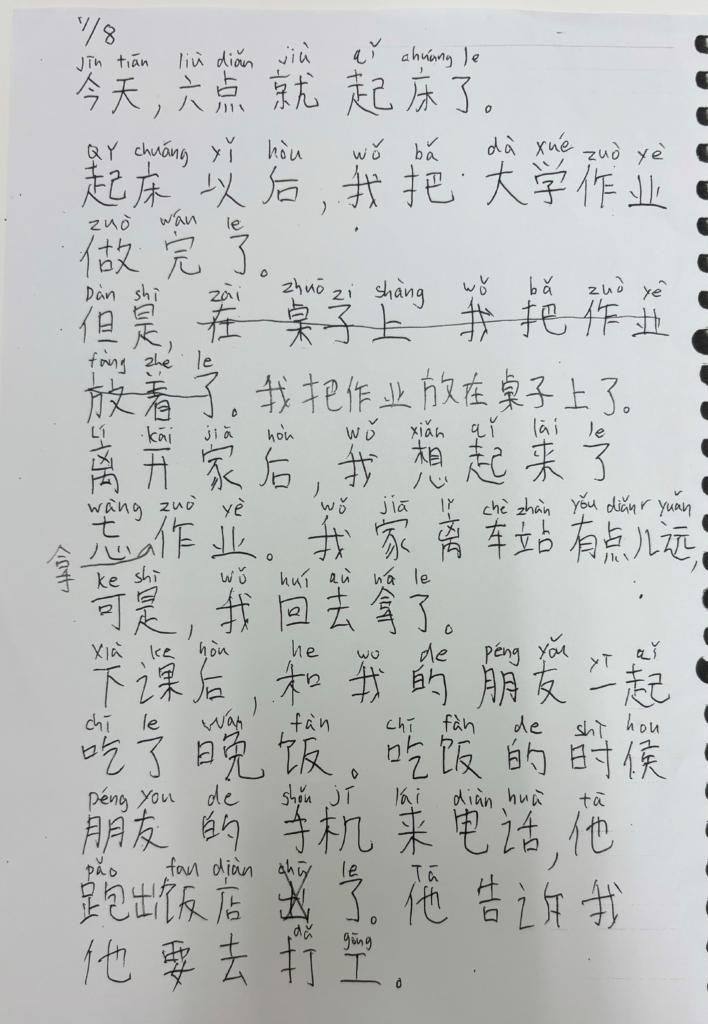 1/8
jīn tiān liù diǎn jiù qǐ chuáng le
今天,六点 就 起 床了。
qǐ chuáng yǐ hòu wǒ bǎ dà xué zuò yè
起床 以 后,我 把 大 学 作 业
zuò wán le
做 完 了。
Dàn shì zài zhuō zi shàng wǒ bǎ zuò yè
但 是, 在 桌 子 上 我 把 作 业
fàng zhe le
放 着 了。我把作业放在桌子上了。
Lí kāi jiā hòu wǒ xiǎng qǐ lái le
离 开 家 后,我 想 起 来 了
wàng zuò yè wǒ jiā lí chē zhàn yǒu diǎnr yuǎn
忘 拿 作 业。我 家 离 车站 有点儿远,
ke shì wǒ huí qù ná le
可是,我 回 去 拿 了。
xià ke hòu he wo de péng yǒu yī qǐ
下 课 后,和 我 的 朋 友 一起
chī le wǎn fàn chī fàn de shì hou
吃 了 晚 饭。吃 饭 的 时 候
péng you de shǒu jī lái diàn huà tā
朋友 的 手机 来 电 话,他
pǎo fan diàn chū le Tā
跑出饭店 出 了。他 告 诉 我
dǎ gōng
他 要 去 打 工。